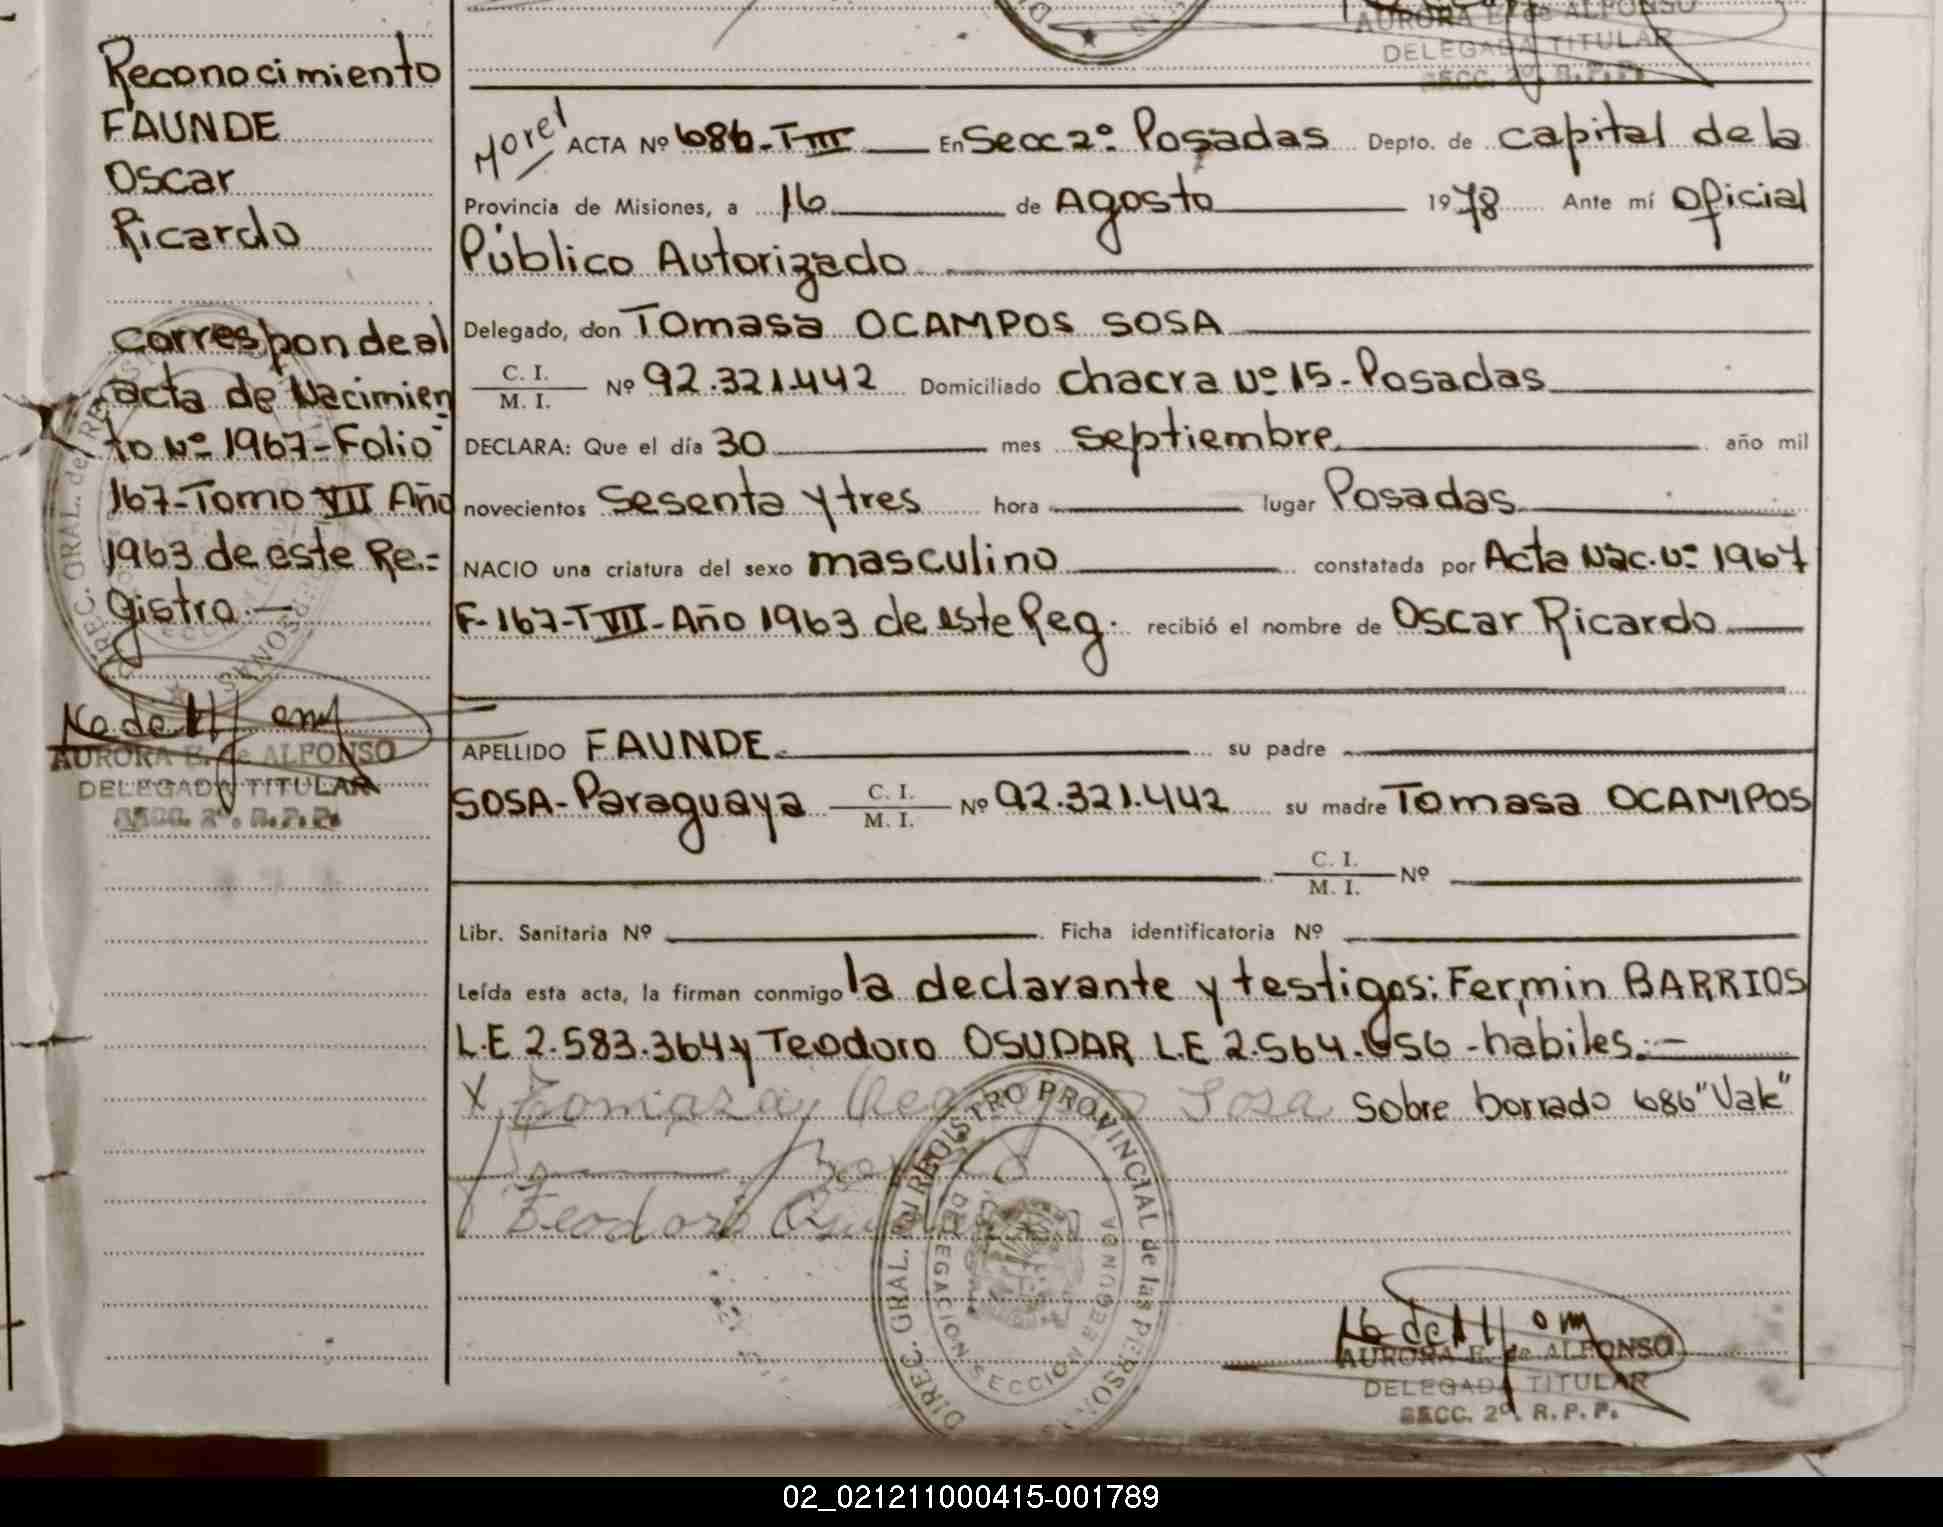 Reconocimiento
FAUNDE
Oscar
Ricardo
Corresponde al
acta de Nacimien
to Nº 1967-Folio
167-Tomo VII Año
1963 de este Re-
gistro.—
AURORA E. de ALFONSO
DELEGADA TITULAR
SECC. 2º. R.P.P.
AURORA E. de ALFONSO
DELEGADA TITULAR
SECC. 2º. R.P.P.
Morel ACTA Nº 686-TIII En Secc 2º Posadas Depto. de Capital de la
Provincia de Misiones, a 16 de Agosto 1978 Ante mí Oficial
Público Autorizado
Delegado, don Tomasa OCAMPOS SOSA
C. I. / M. I. Nº 92.321.442 Domiciliado chacra Nº 15-Posadas
DECLARA: Que el día 30 mes septiembre año mil
novecientos sesenta y tres hora lugar Posadas
NACIO una criatura del sexo masculino constatada por Acta Nac. Nº 1967
F-167-TVII-Año 1963 de este Reg. recibió el nombre de Oscar Ricardo
APELLIDO FAUNDE su padre
SOSA-Paraguaya C. I. / M. I. Nº 92.321.442 su madre Tomasa OCAMPOS
C. I. / M. I. Nº
Libr. Sanitaria Nº Ficha identificatoria Nº
Leída esta acta, la firman conmigo la declarante y testigos: Fermin BARRIOS
L.E 2.583.364 y Teodoro OSUDAR L.E 2.564.656 -habiles.—
X Tomaza Sosa Sobre borrado 686 "Vale"
Teodoro
DIREC. GRAL. del REGISTRO PROVINCIAL de las PERSONAS
DELEGACION SECCION SEGUNDA
AURORA E. de ALFONSO
DELEGADA TITULAR
SECC. 2º. R.P.P.
02_021211000415-001789